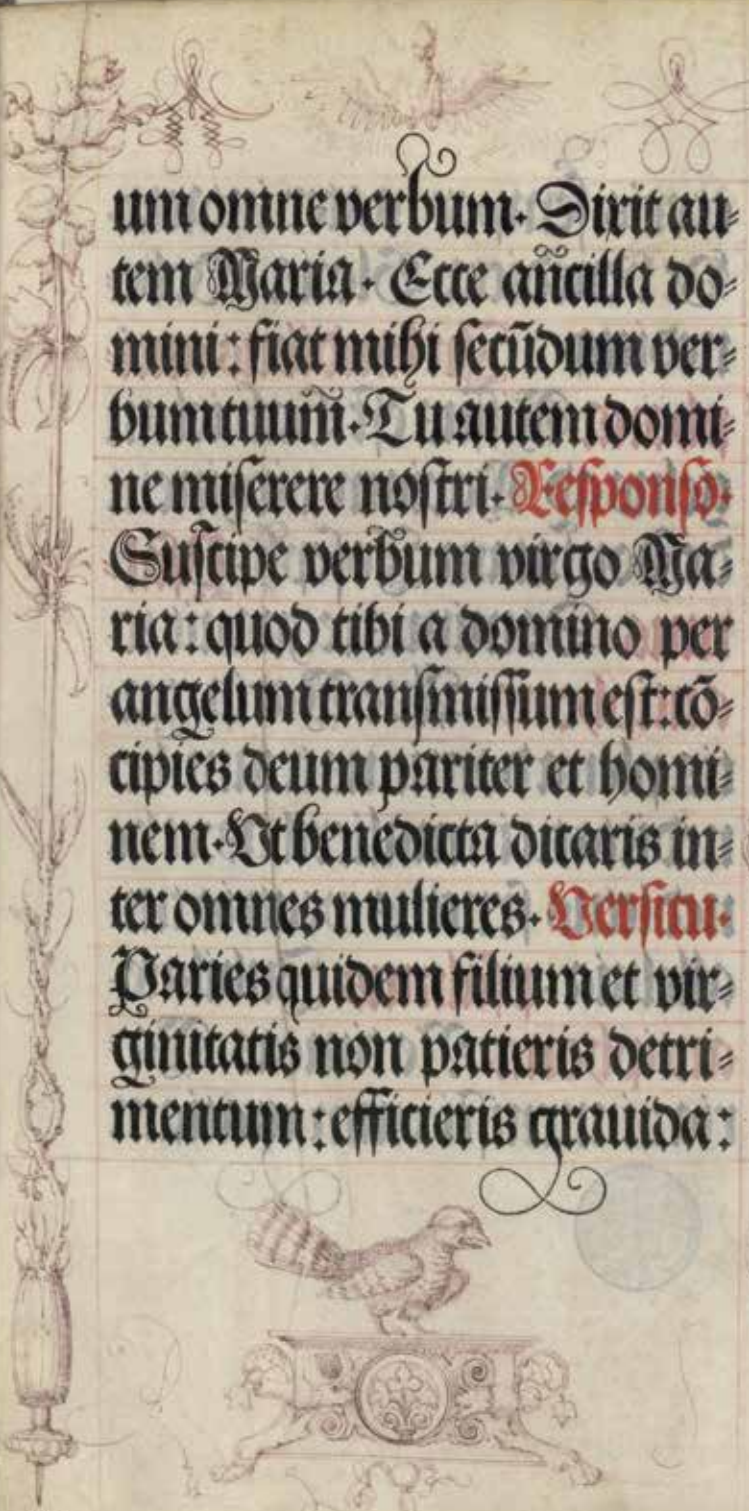 um omne verbum. Dixit au⸗
tem Maria. Ecce añcilla do⸗
mini: fiat mihi secūdum ver⸗
bum tuum̄. Tu autem domi⸗
ne miserere nostri. Responsō.
Suscipe verbum virgo Ma⸗
ria: quod tibi a domino per
angelum transmissum est: cō⸗
cipies deum pariter et homi⸗
nem. Ut benedicta dicaris in⸗
ter omnes mulieres. Versicu.
Paries quidem filium et vir⸗
ginitatis non patieris detri⸗
mentum: efficieris gravida: